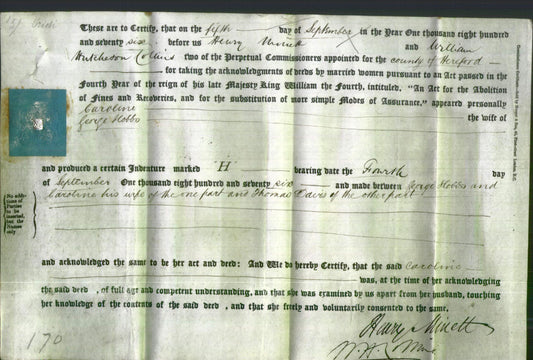 These are to Certify, that on the fifth day of September in the Year One thousand eight hundred
and seventy six before us Henry Minett and William
Hutcheson Collins two of the Perpetual Commissioners appointed for the county of Hereford
for taking the acknowledgments of deeds by married women pursuant to an Act passed in the
Fourth Year of the reign of his late Majesty King William the Fourth, intituled, "An Act for the Abolition
of Fines and Recoveries, and for the substitution of more simple Modes of Assurance," appeared personally
Caroline the wife of
George Hobbs
and produced a certain Indenture marked H bearing date the Fourth day
of September One thousand eight hundred and seventy six and made between George Hobbs and
Caroline his wife of the one part and Thomas Davis of the other part
No additions of Parties to be inserted, but the Names only
and acknowledged the same to be her act and deed: And We do hereby Certify, that the said Caroline
was, at the time of her acknowledging
the said deed, of full age and competent understanding, and that she was examined by us apart from her husband, touching
her knowledge of the contents of the said deed, and that she freely and voluntarily consented to the same.
Harry Minett
W. H. Collins
170